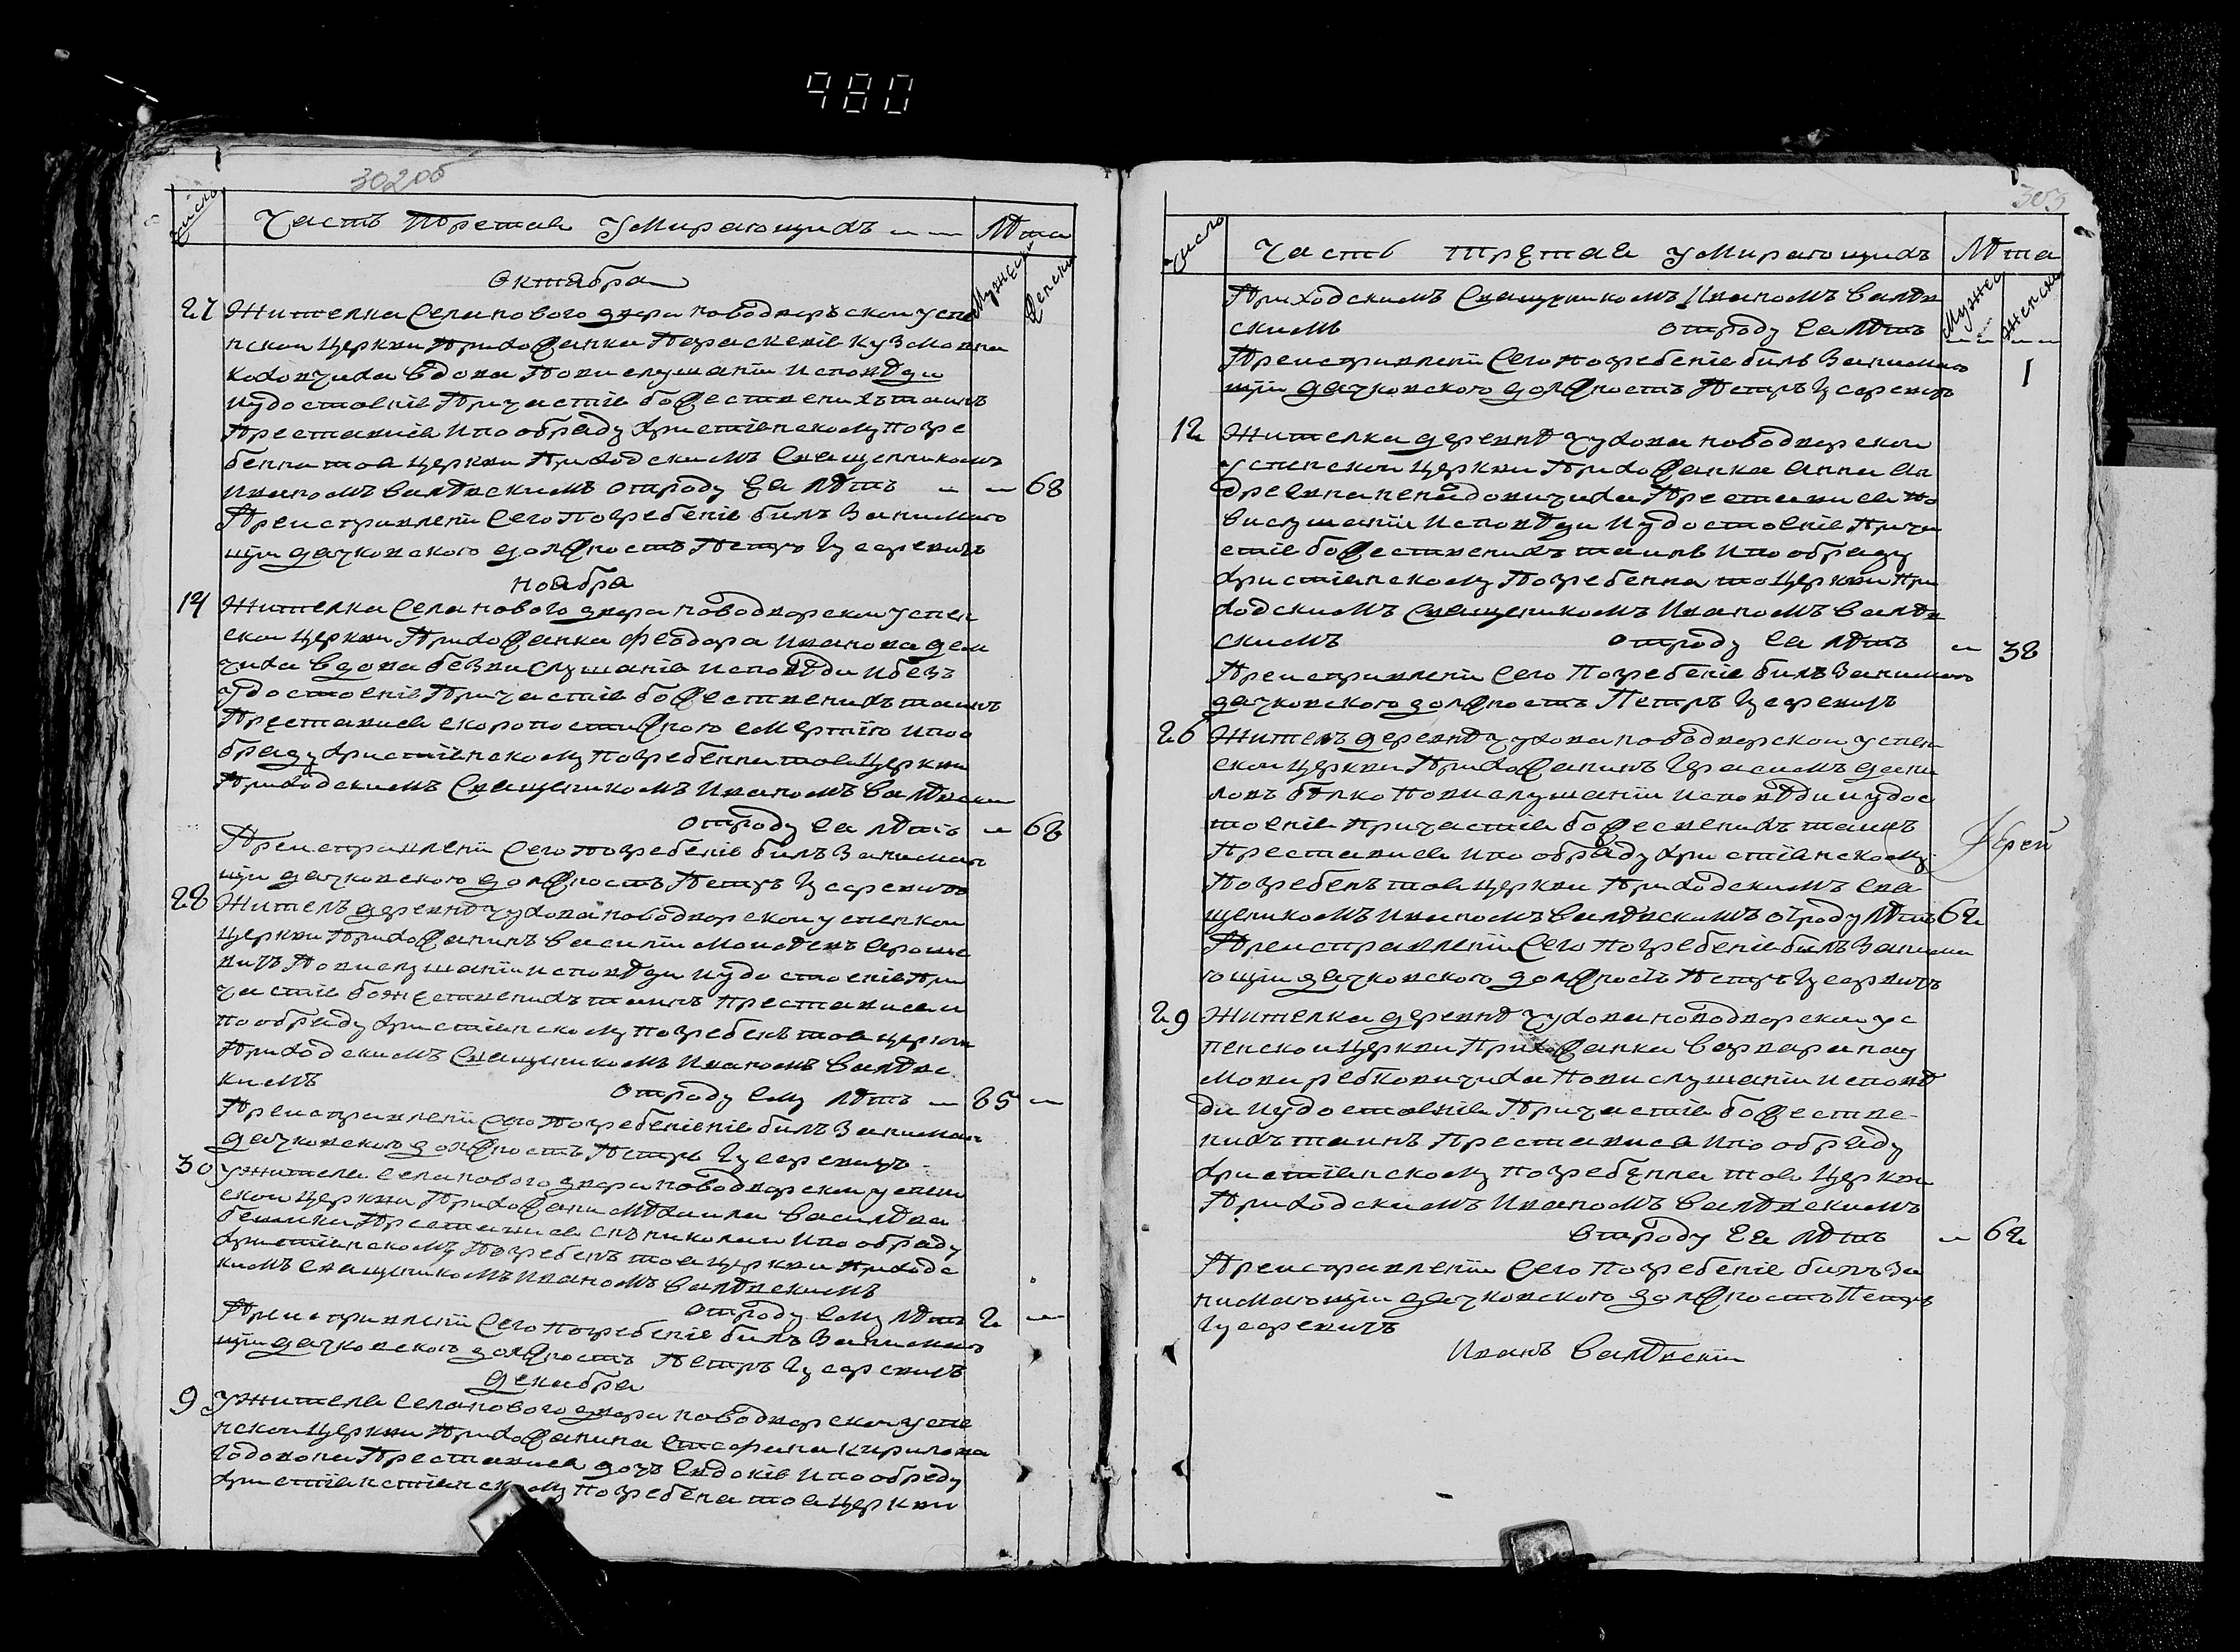 980
302об
Число
Часть Третая Умирающихъ
Лѣта
Мужеск
Женски
Октября
27 Жителка Села нового двора новодворъской успе
нской Церкви Прихожанка Параскевіе Кузмовна
вдова Повислушаніи исповѣди
иудостоеніе Причастіе божественихъ таинъ
Преставися ипо обряду християнскому погре
бенна тоя Церкви Приходскимъ Священникомъ
Иваномъ Валѣвскимъ отроду Ея лѣтъ – – 68
Преисправлени Сего Погребеніе билъ Занимаю
щи дячковского должность Петръ Гусаревичъ
ноября
14 Жителка Села нового двора новодворской успен
ской Церкви Прихожанка Феодора Иванова
вдова безвислушаніе исповѣди ибезъ
удостоеніе Причастіе божественихъ таинъ
Преставися скоропостижного смертїю ипоо
бряду християнскому погребенна тоя Церкви
Приходскимъ Священикомъ Иваномъ Валѣвски
отроду Ея лѣтъ – 68
Преисправлени Сего погребеніе билъ Занимаю
щи дячковского должность Петръ Гусаревичъ
28 Житель деревнѣ чухова новодворской успенской
Церкви Прихожанинъ Василіи
Повислушаніи исповѣди иудостоеніе При
частіе божественихъ таинъ Преставися и
по обряду християнскому погребенъ тоя церкви
Приходскимъ Священикомъ Иваномъ Валѣвс
кимъ отроду Ему лѣтъ – 85 –
Преисправлени Сего Погребеніеніе билъ Занимаю
дячковского должность Петръ Гусаревичъ
30 Ужителя Села нового двора новодворской успен
ской Церкви Прихожани Мѣхаила Василѣва
Преставися снъ николаи ипо обряду
християнскому Погребенъ тоя церкви Приходс
кимъ священикомъ Иваномъ Валѣвскимъ
отроду Ему лѣтъ 2 –
Преисправлени Сего погребеніе билъ Занимаю
щи дячковского должность Петръ Гусаревичъ
декабря
9 Ужителя Села нового двора новодворской успе
нской Церкви Прихожанина Стефана Кирилова
Преставися дочъ Евдокіе ипо обряду
християнстіянскому погребена тоя Церкви
303
Число
Часть третая умирающихъ
Лѣта
Мужес
женски
Приходскимъ Священикомъ Иваномъ Валѣв
скимъ отроду Ея лѣтъ
Преисправлении Сего погребеніе билъ Занимаю 1
щіи дячковского должность Петръ Гусаревичъ
12 Жителка деревнѣ чухова новодворской
Успенской Церкви Прихожанка Анна Ан
дреевна Преставися по
вислушаніи исповѣди иудостоеніе Прича
стіе божественихъ таинъ ипо обряду
християнскому Погребенна то Церкви При
ходскимъ Священикомъ Иваномъ Валѣв
скимъ отроду Ея лѣтъ – 38
Преисправлени Сего Погребеніе билъ Занимаю
дячковского должность Петръ Гусаревичъ
26 Житель деревнѣ чухова новодворской успен
ской Церкви Прихожанинъ Герасимъ дани
ловъ Повислушаніи исповѣди иудос
тоеніе Причастіе божесвенихъ таинъ
Преставися ипо обряду християнскому
Иерей
Погребенъ тоя Церкви Приходскимъ свя
щеникомъ Иваномъ Валѣвскимъ отроду лѣтъ 62
Преисправлении Сего погребеніе билъ Занима
ющіи дячковского должность Петръ Гусарвичъ
29 Жителка деревнѣ чухова новодворской ус
пенской Церкви Прихожанка Варвара нау
мова Повислушаніи исповѣ
ди иудостоеніе Причастіе божестве
нихъ таинъ Преставися ипо обряду
християнскому погребенна тоя Церкви
Приходскимъ Иваномъ Валѣвскимъ
отроду Ея лѣтъ – 62
Преисправлении Сего погребеніе билъ За
нимающи дячковского должность Петръ
Гусаревичъ
Иванъ Валѣвскіи